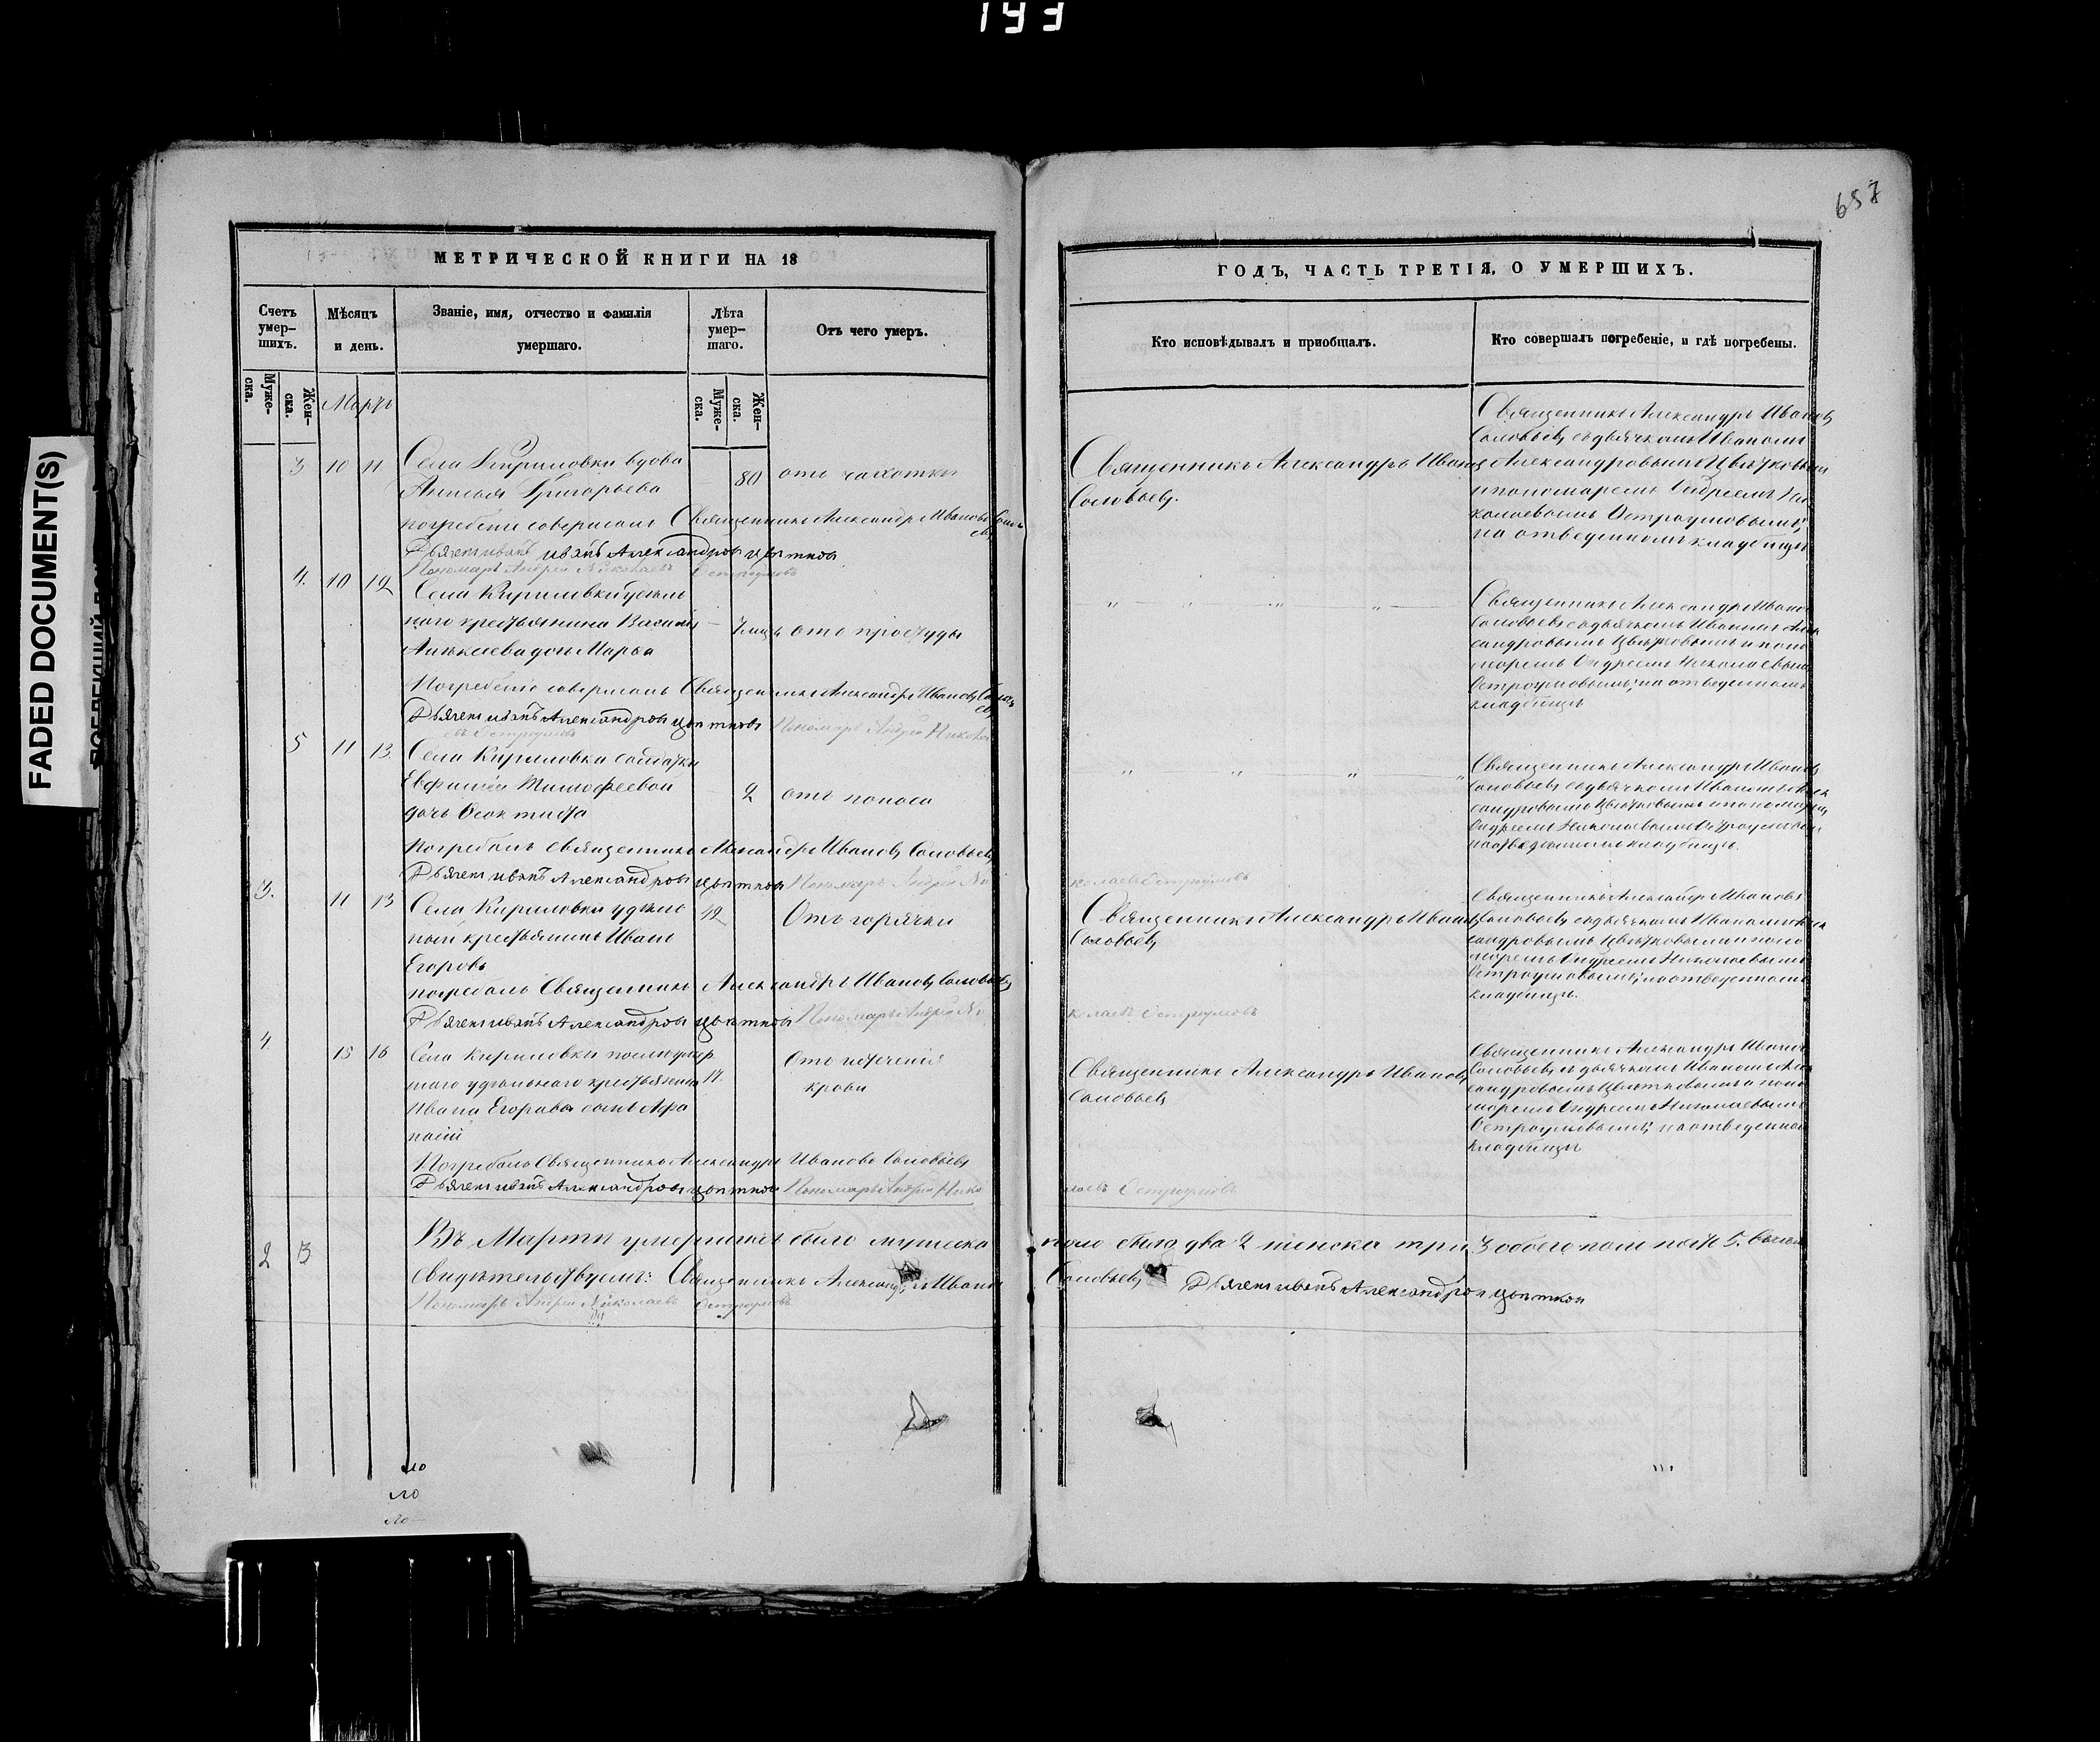 143
657
FADED DOCUMENT(S)
МЕТРИЧЕСКОЙ КНИГИ НА 18
Счетъ умер-шихъ.
Мѣсяцъ и день.
Званіе, имя, отчество и фамилія умершаго.
Лѣта умер-шаго.
Отъ чего умеръ.
Муже-ска.
Жен-ска.
Муже-ска.
Жен-ска.
Мартъ
3 10 11 Села Кириловки вдова 80 отъ чахотки
Григорьева
погребеніе совершалъ Священникъ Александръ Ивановъ Соловьевъ
Дьячекъ иванъ Александровъ цвѣтковъ
Пономарь Андрей Николаевъ Остроумовъ
4. 10 12 Села Кириловки удѣль
наго крестьянина Василія 7 мцъ отъ простуды
Алексѣева дочь Марья
Погребеніе совершалъ Священникъ Александръ Ивановъ Соловьевъ
Дьячекъ иванъ Александровъ цвѣтковъ Пономарь Андрей Никола
евъ Остроумовъ
5 11 13 Села Кириловки солдатки
Евфиміи Тимофеевой 2 отъ поноса
дочь
Погребалъ священникъ Александръ Ивановъ Соловьевъ
Дьячекъ иванъ Александровъ цвѣтковъ Пономарь Андрей Ни
3. 11 13 Села Кириловки удѣль 42 Отъ горячки
ный крестьянинъ Иванъ
Егоровъ
погребалъ Священникъ Александръ Ивановъ Соловьевъ
Дьячекъ иванъ Александровъ цвѣтковъ Пономарь Андрей Ни
4 15 16 Села Кириловки послѣ умер Отъ истеченія
шаго удѣльнаго крестьянина 17. крови
Ивана Егорова сынъ Афа
насій
Погребалъ Священникъ Александръ Ивановъ Соловьевъ
Дьячекъ иванъ Александровъ цвѣтковъ Пономарь Андрей Нико
2 3 Въ Мартѣ умершихъ было мужеска
Свидѣтельствуемъ: Священникъ Александръ Ивановъ
Пономарь Андрей Николаевъ Остроумовъ
ло
ло
ло
ГОДЪ, ЧАСТЬ ТРЕТІЯ, О УМЕРШИХЪ.
Кто исповѣдывалъ и приобщалъ.
Кто совершалъ погребеніе, и гдѣ погребены.
Священникъ Александръ Ивановъ
Соловьевъ.
Священникъ Александръ Ивановъ
Соловьевъ съ дьячкомъ Иваномъ
Александровымъ Цвѣтковымъ
и пономаремъ Андреемъ Ни
колаевымъ Остроумовымъ;
на отведенномъ кладбищѣ
Священникъ Александръ Ивановъ
Соловьевъ съ дьячкомъ Иваномъ Алек
сандровымъ Цвѣтковымъ и поно
маремъ Андреемъ Николаевымъ
Остроумовымъ; на отведенномъ
кладбищѣ
Священникъ Александръ Ивановъ
Соловьевъ съ дьячкомъ Иваномъ Алек
сандровымъ Цвѣтковымъ и пономаремъ
Андреемъ Николаевымъ Остроумовымъ
на отведенномъ кладбищѣ.
колаевъ Остроумовъ
Священникъ Александръ Ивановъ
Соловьевъ
Священникъ Александръ Ивановъ
Соловьевъ съ дьячкомъ Иваномъ Алек
сандровымъ Цвѣтковымъ и поно
маремъ Андреемъ Николаевымъ
Остроумовымъ; на отведенномъ
кладбищѣ.
колаевъ Остроумовъ
Священникъ Александръ Ивановъ
Соловьевъ
Священникъ Александръ Ивановъ
Соловьевъ съ дьячкомъ Иваномъ Алек
сандровымъ Цвѣтковымъ и поно
маремъ Андреемъ Николаевымъ
Остроумовымъ; на отведенномъ
кладбищѣ
лаевъ Остроумовъ
пола было два 2 женска три 3 обоего пола пять 5. въ чемъ
Соловьевъ Дьячекъ иванъ Александровъ цвѣтковъ